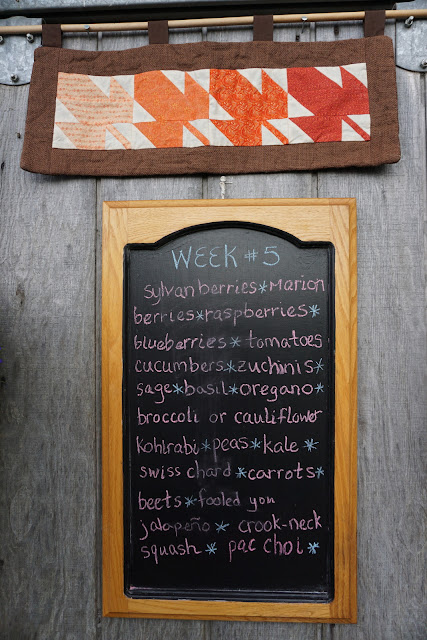 WEEK #5
sylvanberries*Marion
berries*raspberries*
blueberries* tomatoes
cucumbers*zuchinis*
sage*basil*oregano*
broccoli or cauliflower
kohlrabi*peas*kale*
swiss chard*carrots*
beets*fooled you
jalapeño* crook-neck
squash* pac choi*